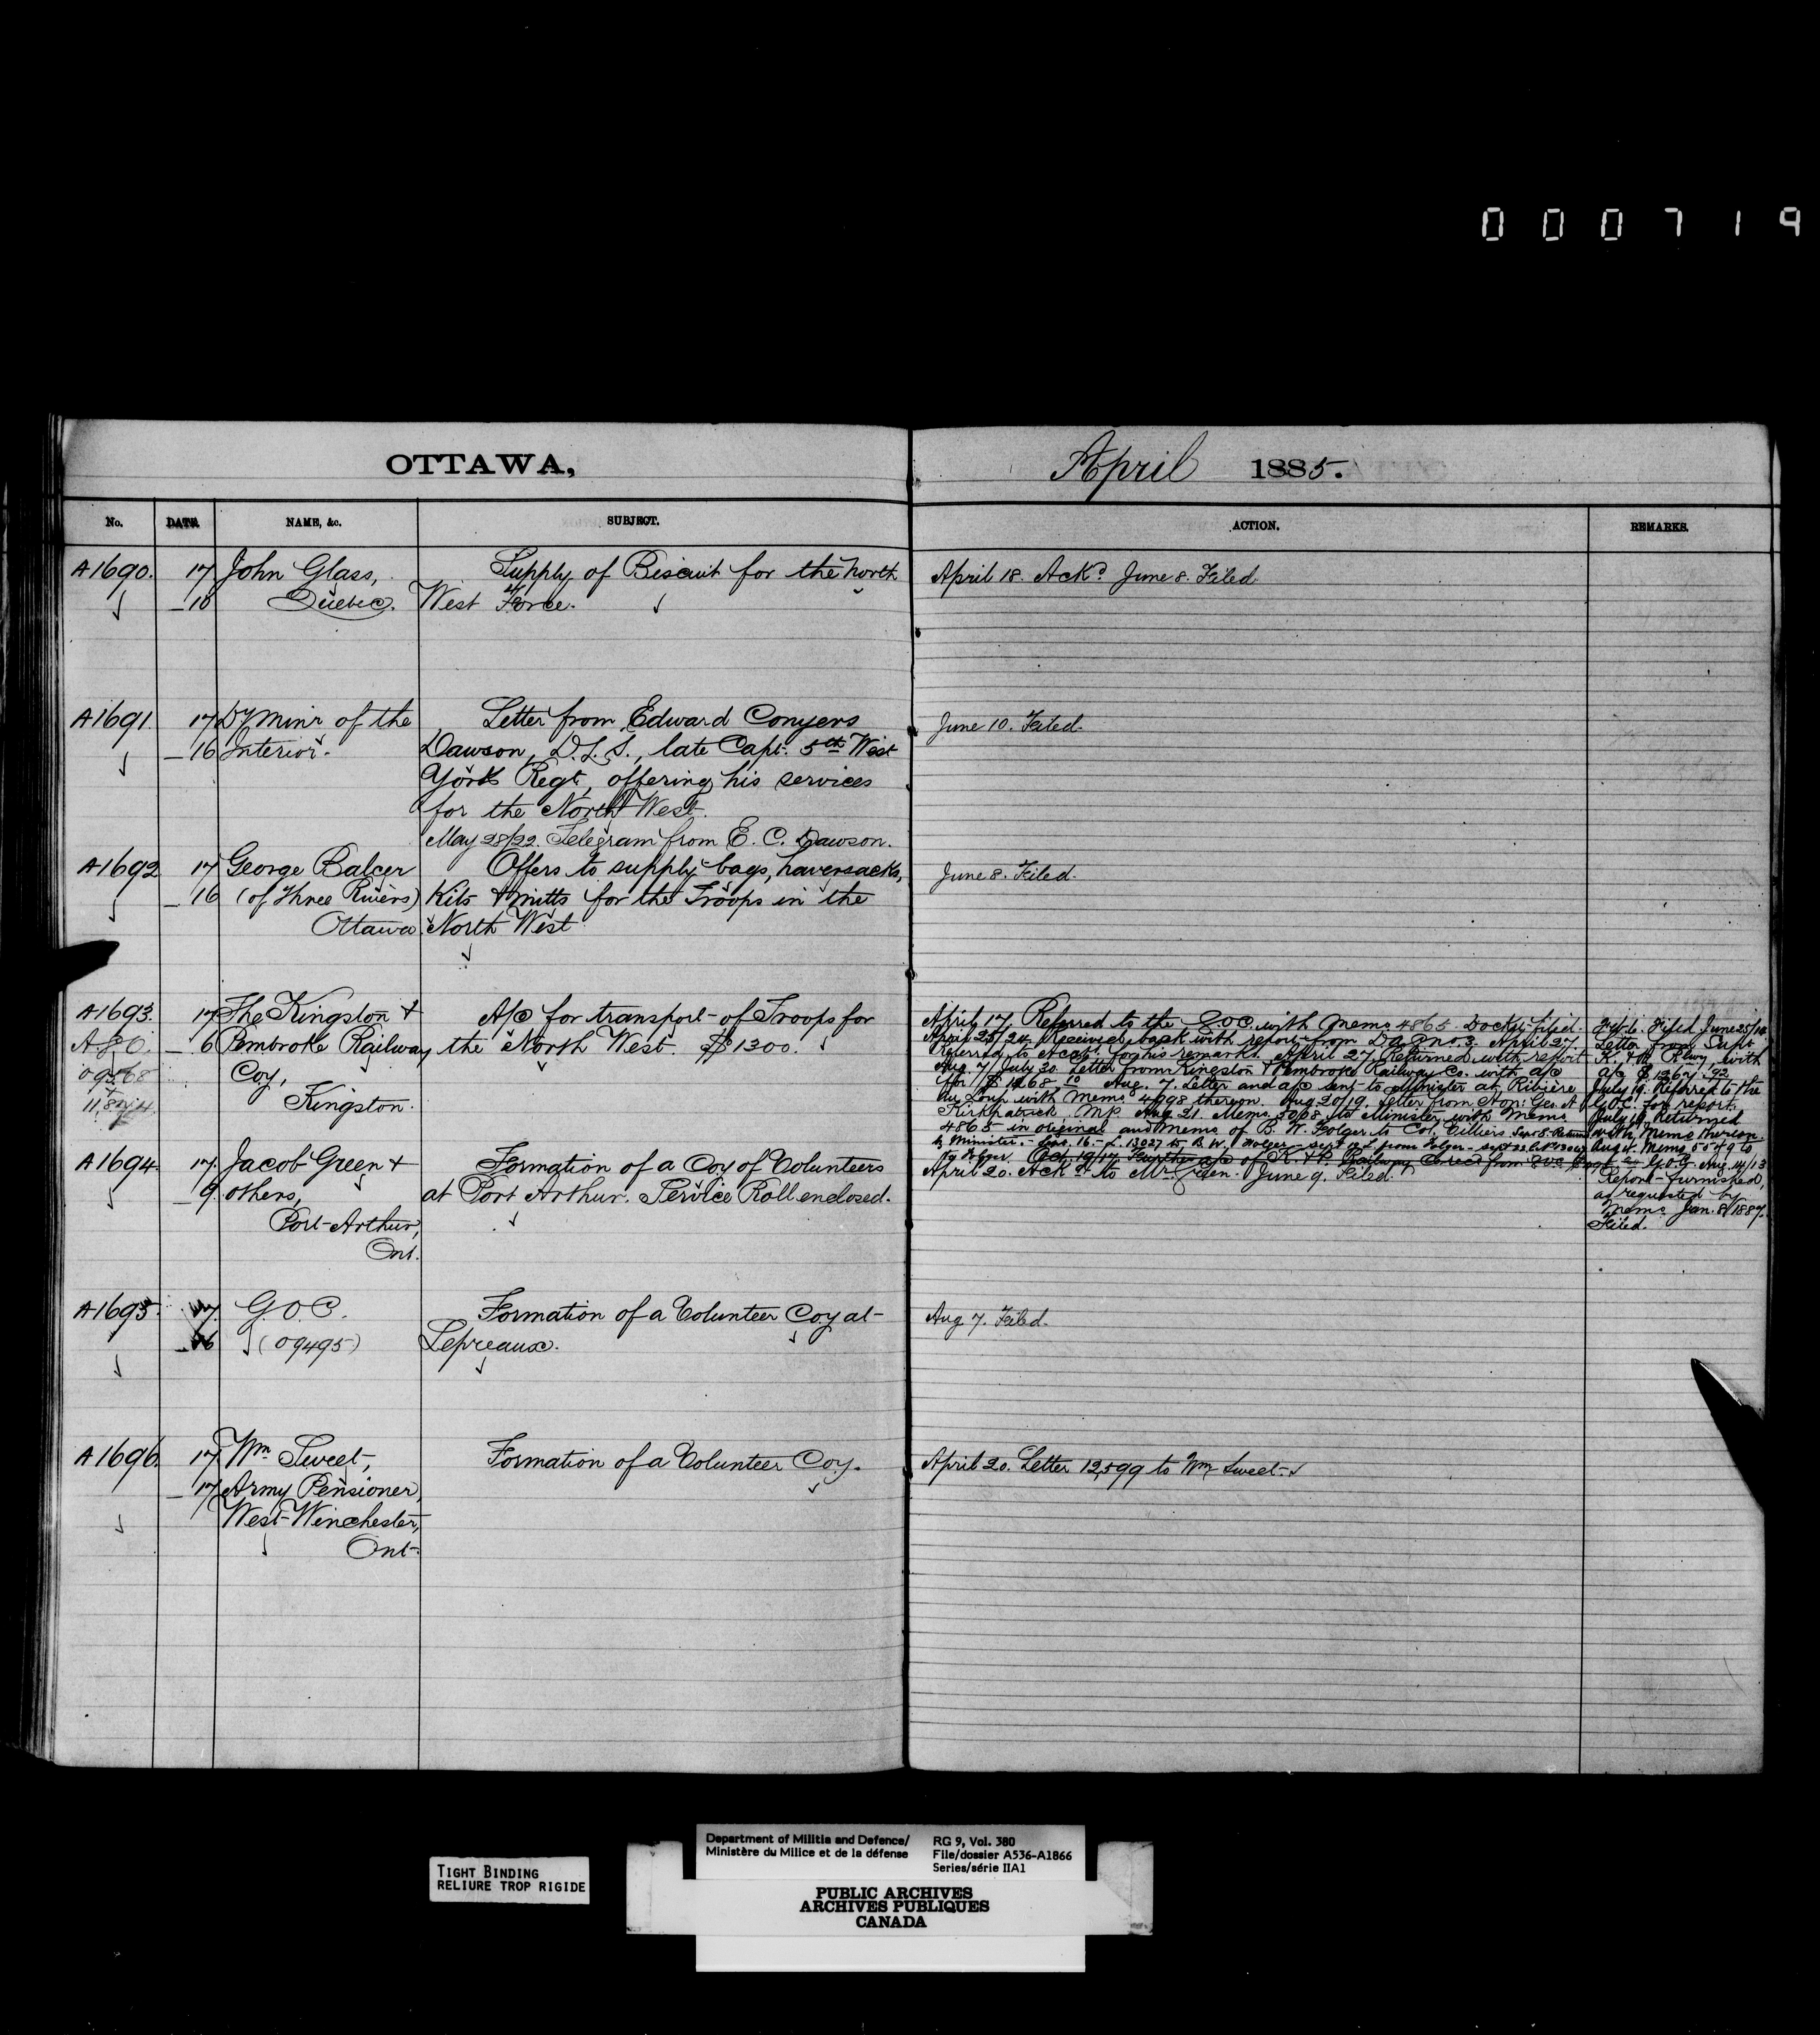 000719
OTTAWA,
April 1885.
No. DATE NAME, &c. SUBJECT.
ACTION. REMARKS.
A1690. 17 John Glass, Supply of Biscuit for the North
_16 Quebec. West Force.
April 18. Ackd. June 8. Filed
A1691. 17 Dy Minr of the Letter from Edward Conyers
_16 Interior. Dawson, D.L.S., late Capt. 5th West
York Regt, offering his services
for the North West.
May 28/22. Telegram from E. C. Dawson.
June 10. Filed.
A1692 17 George Balcer Offers to supply bags, haversacks,
_16 (of Three Rivers) Kits & mitts for the Troops in the
Ottawa. North West
June 8. Filed.
A1693. 17 The Kingston & A/c for transport of Troops for
_6 Pembroke Railway the North West. $1300.
09568 Coy,
Kingston.
April 17. Referred to the G.O.C. with Memo 4865. Docket filed.
April 25/24. Received back with report from D.A.G. No. 3. April 27.
Referred to Acct. for his remarks. April 27. Returned with report
Aug. 7/July 30. Letter from Kingston & Pembroke Railway Co. with a/c
for $1268. Aug. 7. Letter and a/c sent to Minister at Rivière
du Loup with Memo 4998 thereon. Aug 20/19. Letter from Hon: Geo. A
Kirkpatrick MP Aug 21. Memo 5098 to Minister with Memo
4865 in original and Memo of B. W. Folger to Col. Villiers Sep 8. Return
by Minister. 16. L. 13027 to B. W. Folger
Oct. 19/17 Further a/c of K. & P. Railway Co recd from
Filed June 25/
Letter from Supt
K. & P. Rlwy, with
a/c $1267.92
July 10. Referred to the
G.O.C. for report.
July Returned
with Memo thereon.
Aug 4. Memo 5549 to
G.O.C. Aug. 14/13
Report furnished,
as requested by
Memo Jan. 8/1887.
Filed.
A1694 17 Jacob Green & Formation of a Coy of Volunteers
_9 others, at Port Arthur. Service Roll enclosed.
Port Arthur,
Ont.
April 20. Ackd to Mr. Green. June 9. Filed.
A1695. 17. G.O.C. Formation of a Volunteer Coy at
_16 (09495) Lepreaux.
Aug 7. Filed.
A1696. 17 Wm. Sweet, Formation of a Volunteer Coy.
_17 Army Pensioner,
West Winchester,
Ont.
April 20. Letter 12,599 to Wm Sweet.
TIGHT BINDING
RELIURE TROP RIGIDE
Department of Militia and Defence/
Ministère du Milice et de la défense
RG 9, Vol. 380
File/dossier A536-A1866
Series/série IIA1
PUBLIC ARCHIVES
ARCHIVES PUBLIQUES
CANADA